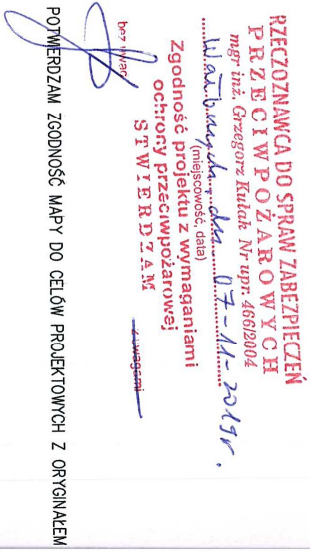 RZECZOZNAWCA DO SPRAW ZABEZPIECZEŃ
PRZECIWPOŻAROWYCH
mgr inż. Grzegorz Kułak Nr upr. 466/2004
Wałbrzych, dn. 07-11-2019r.
(miejscowość, data)
Zgodność projektu z wymaganiami
ochrony przeciwpożarowej
STWIERDZAM
bez uwag z uwagami
POTWIERDZAM ZGODNOŚĆ MAPY DO CELÓW PROJEKTOWYCH Z ORYGINAŁEM